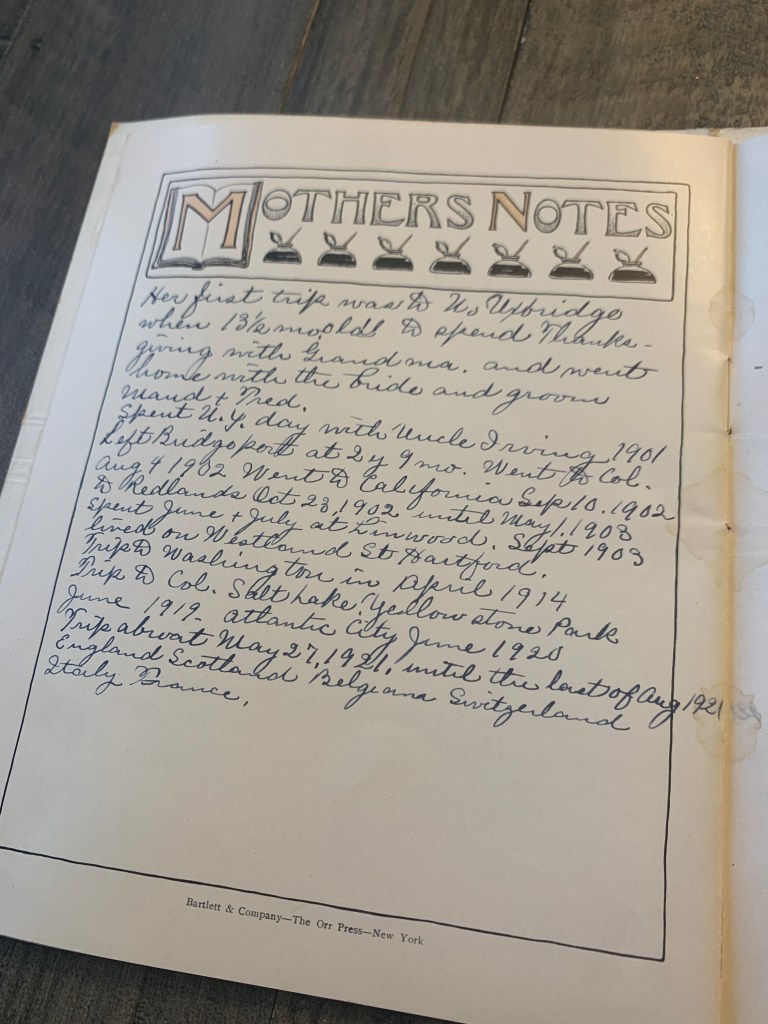 MOTHERS NOTES
Her first trip was to N. Uxbridge
when 13½ mo. old to spend Thanks-
giving with Grandma. and went
home with the bride and groom
Maud + Fred.
Spent N.Y. day with Uncle Irving 1901
Left Bridgeport at 2y 9 mo. Went to Col.
Aug 4 1902 Went to California Sep 10. 1902
to Redlands Oct 23, 1902 until May 1, 1903
Spent June + July at Linwood. Sept 1903
lived on Westland St Hartford.
Trip to Washington in April 1914
Trip to Col. Salt Lake, Yellowstone Park
June 1919 - Atlantic City June 1920
Trip abroat May 27, 1921, until the last of Aug 1921
England Scotland Belgiana Switzerland
Italy France.
Bartlett & Company—The Orr Press—New York